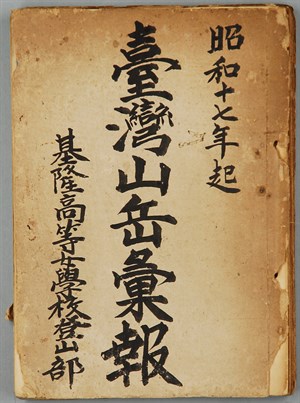 昭和十七年起
臺灣山岳彙報
基隆高等女學校登山部